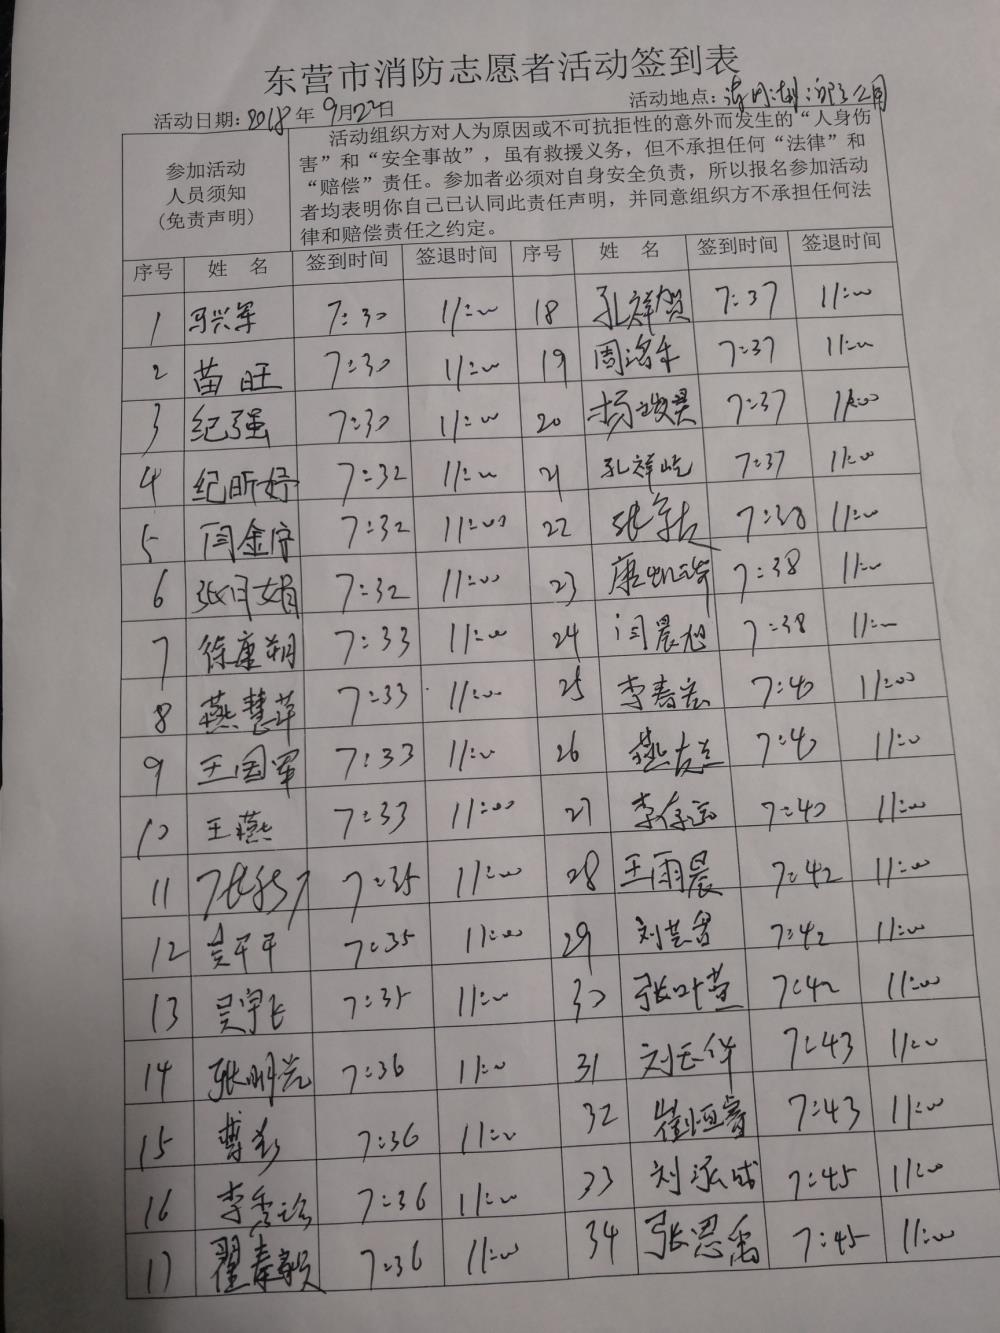 东营市消防志愿者活动签到表
活动日期：2018年9月22日 活动地点：清风湖 公园
参加活动
人员须知
(免责声明)
活动组织方对人为原因或不可抗拒性的意外而发生的“人身伤
害”和“安全事故”，虽有救援义务，但不承担任何“法律”和
“赔偿”责任。参加者必须对自身安全负责，所以报名参加活动
者均表明你自己已认同此责任声明，并同意组织方不承担任何法
律和赔偿责任之约定。
序号 姓 名 签到时间 签退时间 序号 姓 名 签到时间 签退时间
1 马兴军 7:30 11:00 18 孔祥贺 7:37 11:00
2 苗旺 7:30 11:00 19 周洺 7:37 11:00
3 纪强 7:30 11:00 20 杨竣昊 7:37 11:00
4 纪昕妤 7:32 11:00 21 孔祥屹 7:37 11:00
5 闫金 7:32 11:00 22 张 7:38 11:00
6 张月娟 7:32 11:00 23 唐 7:38 11:00
7 徐康朔 7:33 11:00 24 闫晨旭 7:38 11:00
8 燕慧萍 7:33 11:00 25 李春宏 7:40 11:00
9 王国军 7:33 11:00 26 燕 7:40 11:00
10 王燕 7:33 11:00 27 李 7:40 11:00
11 7:35 11:00 28 王雨晨 7:42 11:00
12 吴平平 7:35 11:00 29 刘 7:42 11:00
13 吴宇飞 7:35 11:00 30 张叶萱 7:42 11:00
14 张明党 7:36 11:00 31 刘玉华 7:43 11:00
15 曹彭 7:36 11:00 32 崔恒睿 7:43 11:00
16 李秀 7:36 11:00 33 刘泓成 7:45 11:00
17 翟毒毅 7:36 11:00 34 张思禹 7:45 11:00